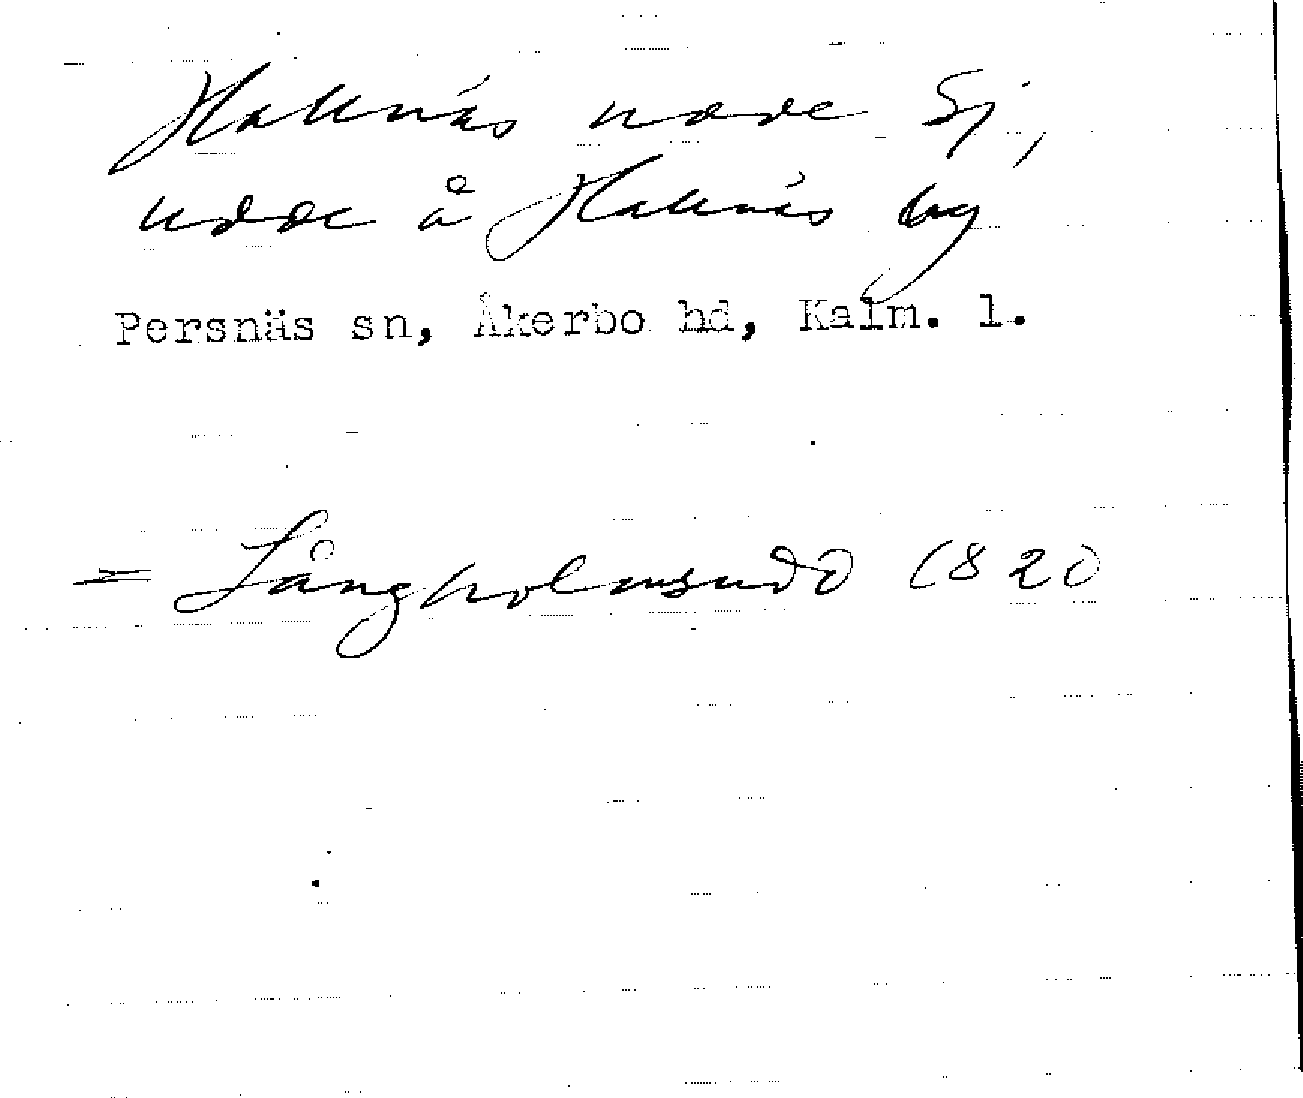 Hallnäs udde Sj,
udde å Hallnäs by
Persnäs sn, Åkerbo hd, Kalm. l.
= Långholmsudd 1820